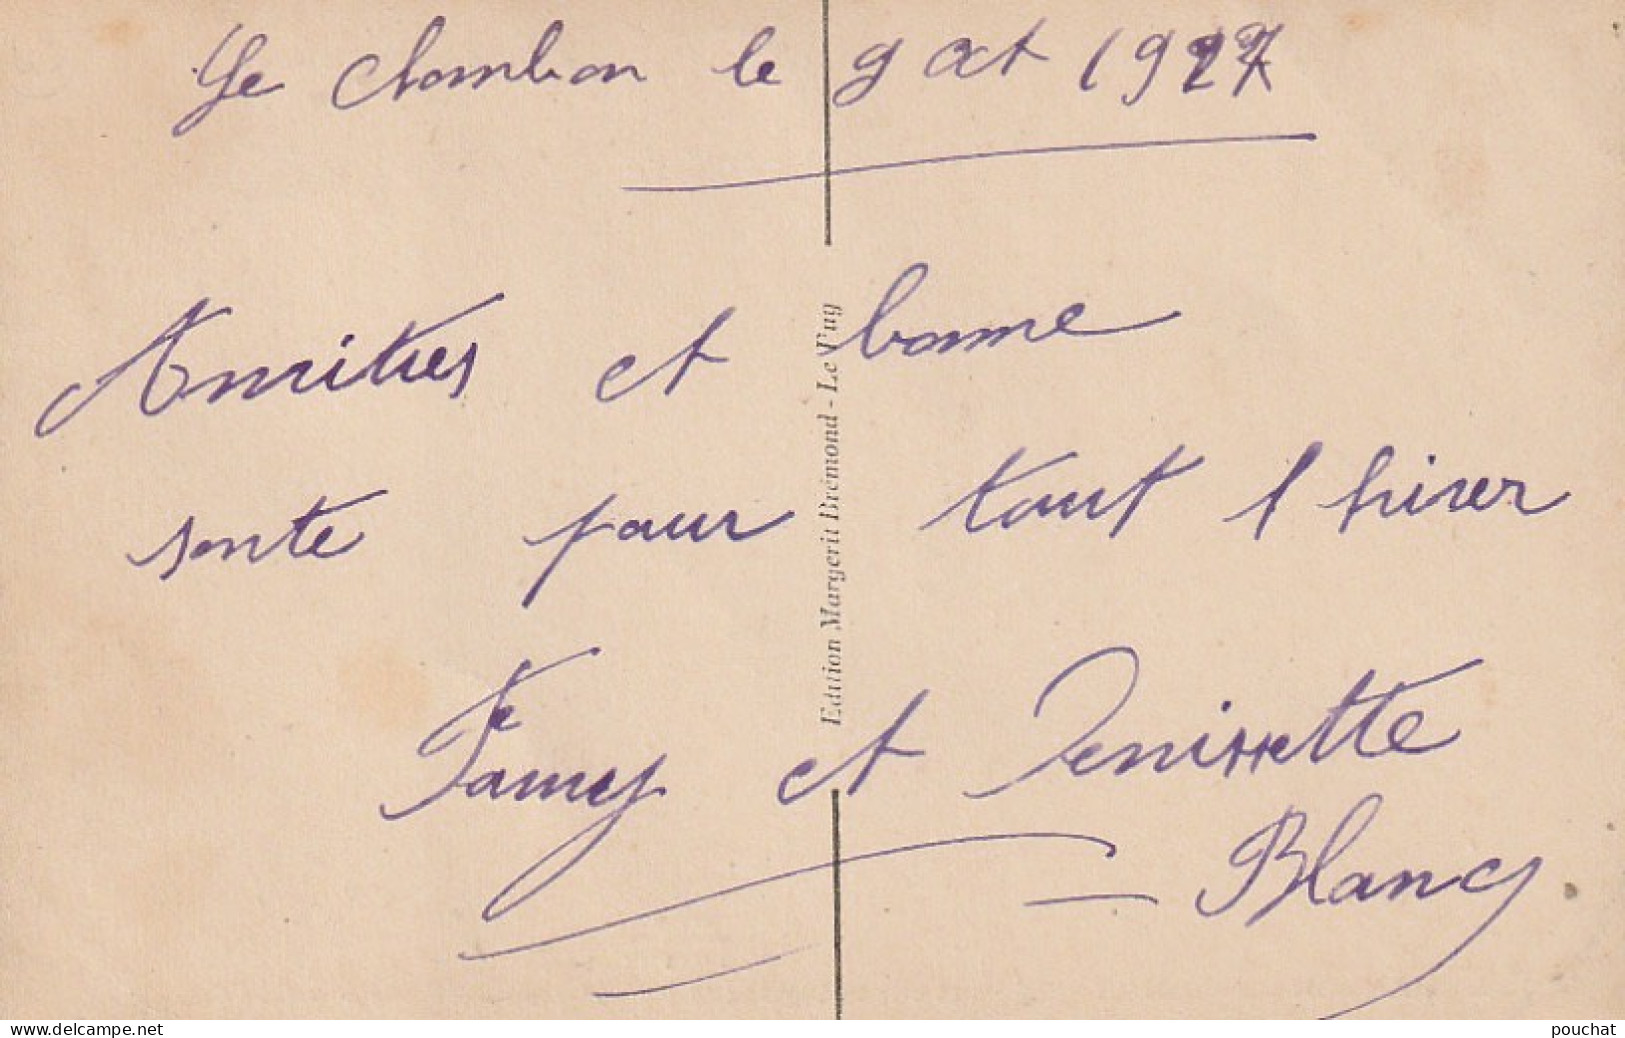 Le Chambon le 9 oct 1927
Amitiés et bonne
sente pour tout l hiver
Fancy et Denissette
Blancy
Edition Margerit Brémond - Le Puy
www.delcampe.net
pouchat